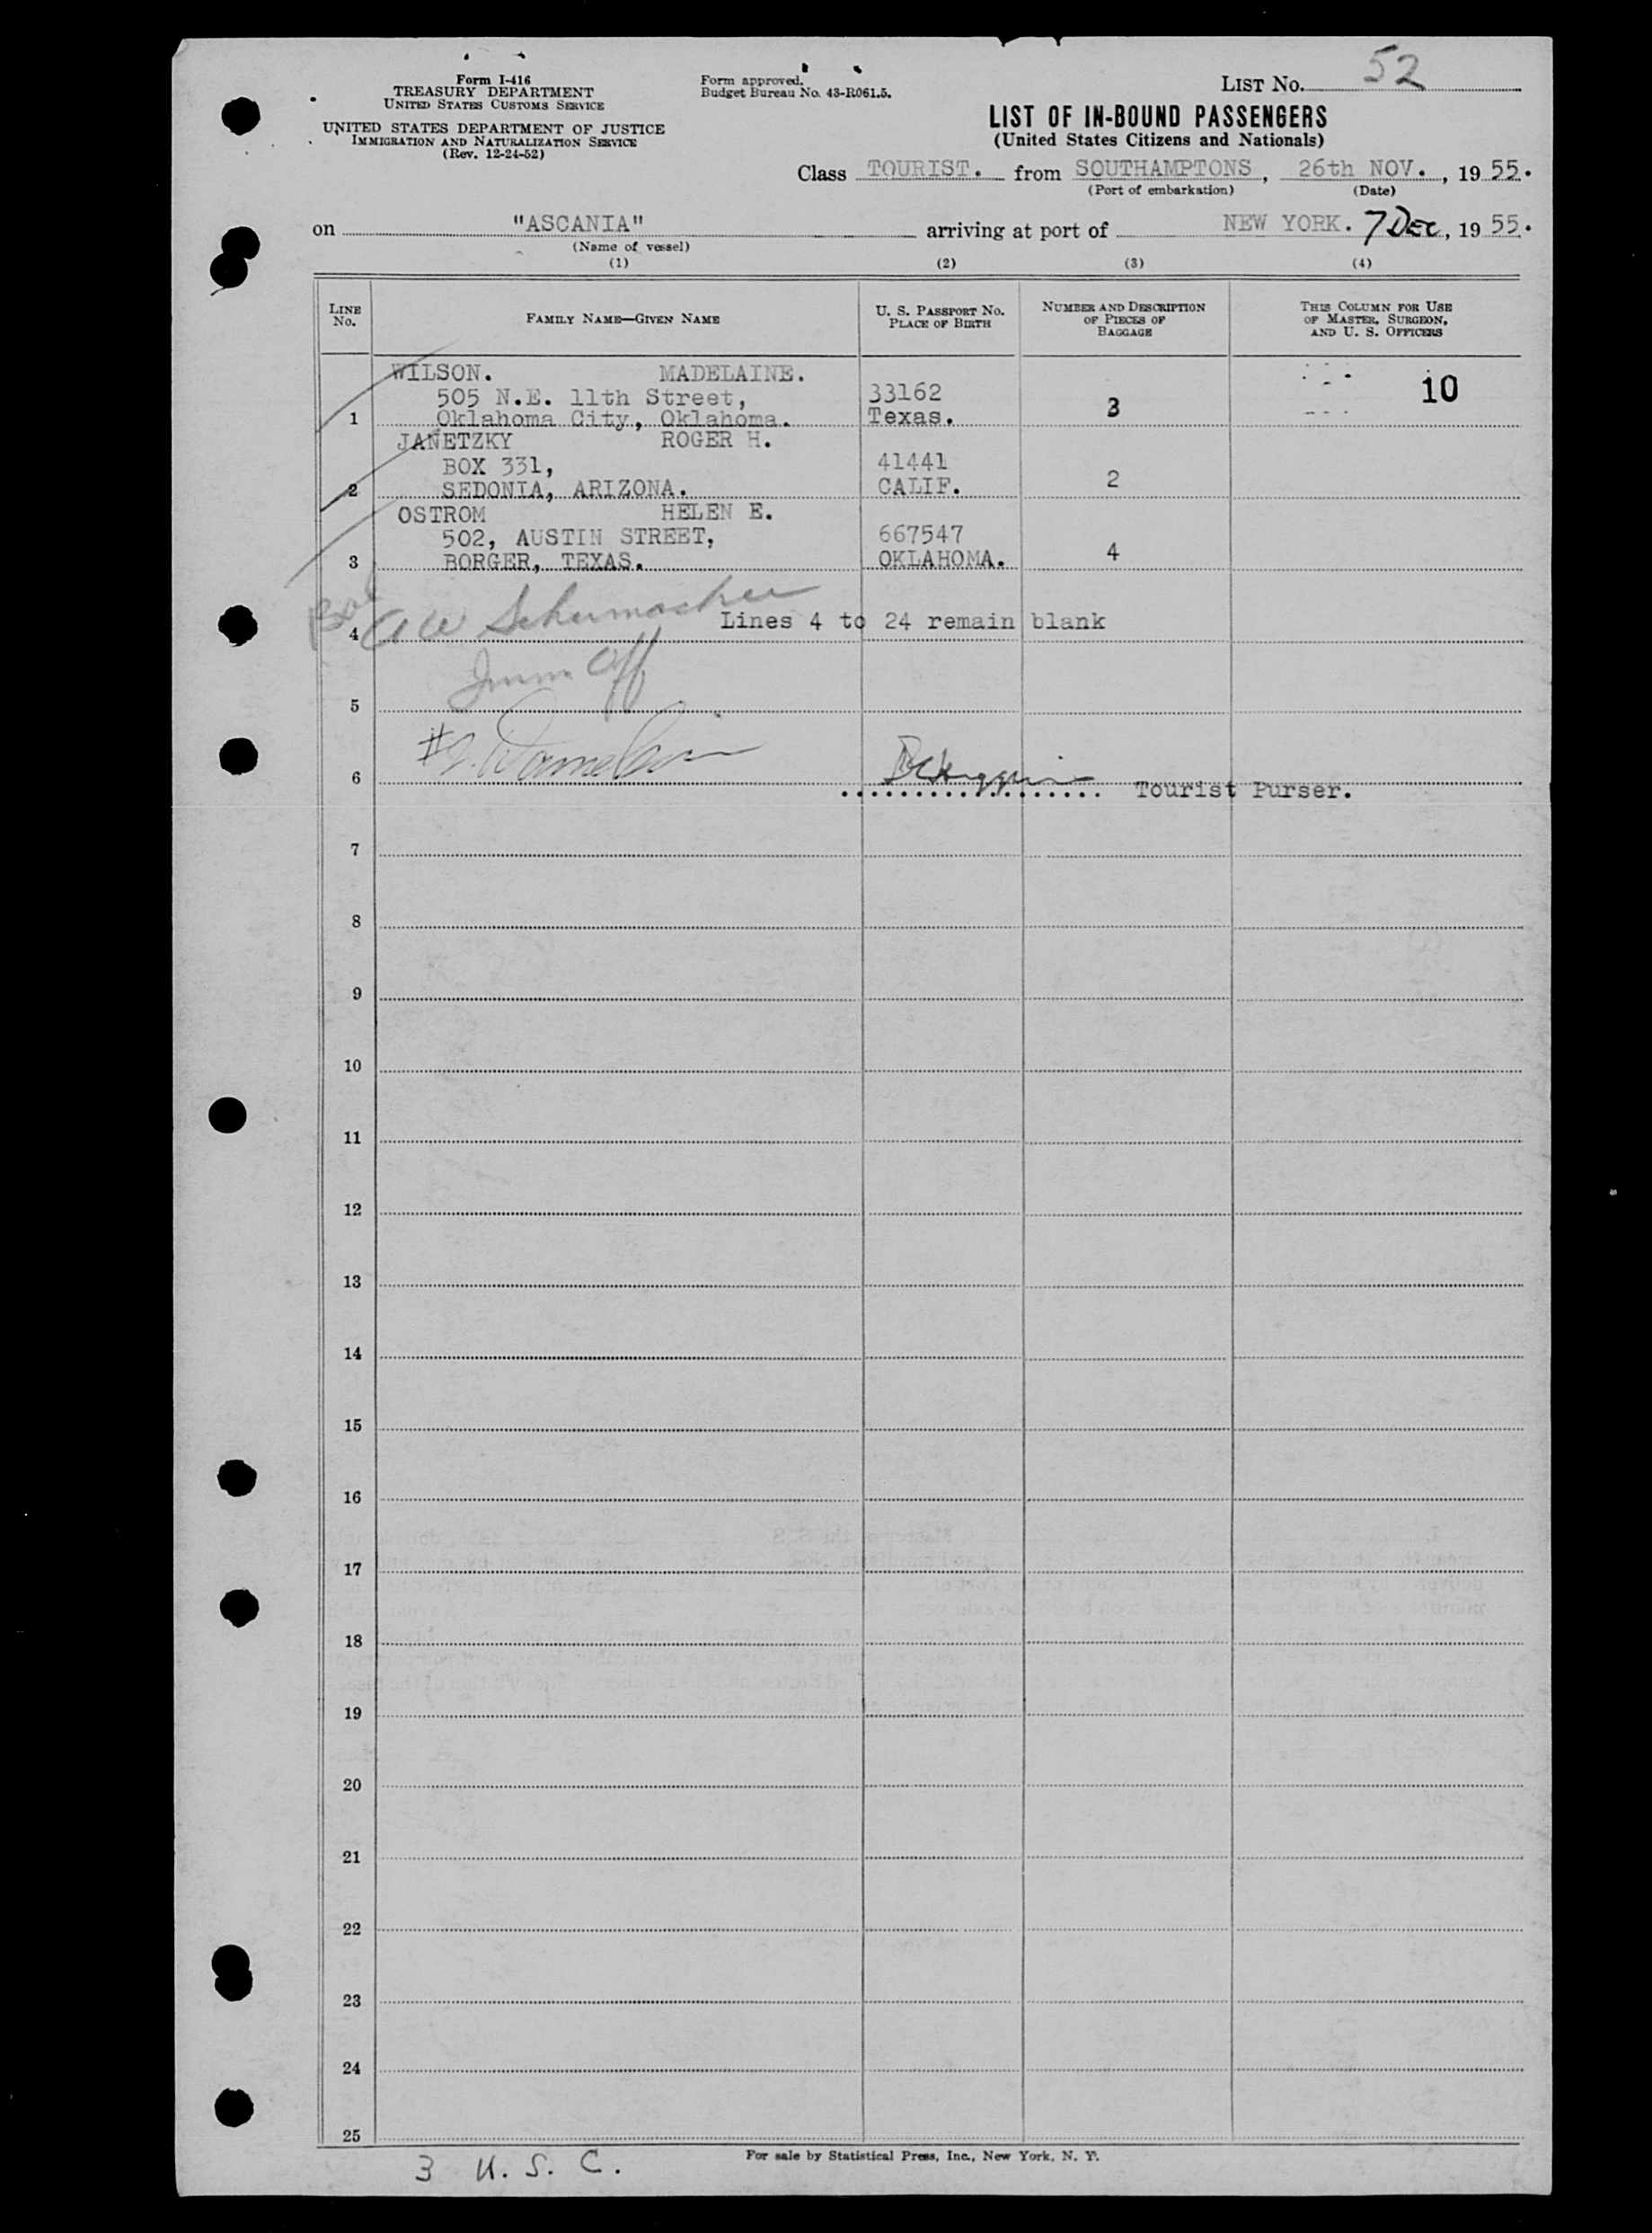 Form I-416
TREASURY DEPARTMENT
UNITED STATES CUSTOMS SERVICE
UNITED STATES DEPARTMENT OF JUSTICE
IMMIGRATION AND NATURALIZATION SERVICE
(Rev. 12-24-52)
Form approved.
Budget Bureau No. 43-R061.5.
LIST No. 52
LIST OF IN-BOUND PASSENGERS
(United States Citizens and Nationals)
Class TOURIST. from SOUTHAMPTONS, 26th NOV., 1955.
(Port of embarkation) (Date)
on "ASCANIA" arriving at port of NEW YORK. 7 DEC, 1955.
(Name of vessel)
(1) (2) (3) (4)
LINE No. FAMILY NAME—GIVEN NAME U. S. PASSPORT No. PLACE OF BIRTH NUMBER AND DESCRIPTION OF PIECES OF BAGGAGE THIS COLUMN FOR USE OF MASTER, SURGEON, AND U. S. OFFICERS
WILSON. MADELAINE.
505 N.E. 11th Street, 33162 10
1 Oklahoma City, Oklahoma. Texas. 3
JANETZKY ROGER H.
BOX 331, 41441
2 SEDONIA, ARIZONA. CALIF. 2
OSTROM HELEN E.
502, AUSTIN STREET, 667547
3 BORGER, TEXAS. OKLAHOMA. 4
A W Schumacher
4 Lines 4 to 24 remain blank
Imm Off
5
6
Tourist Purser.
7
8
9
10
11
12
13
14
15
16
17
18
19
20
21
22
23
24
25
3 U. S. C.
For sale by Statistical Press, Inc., New York, N. Y.